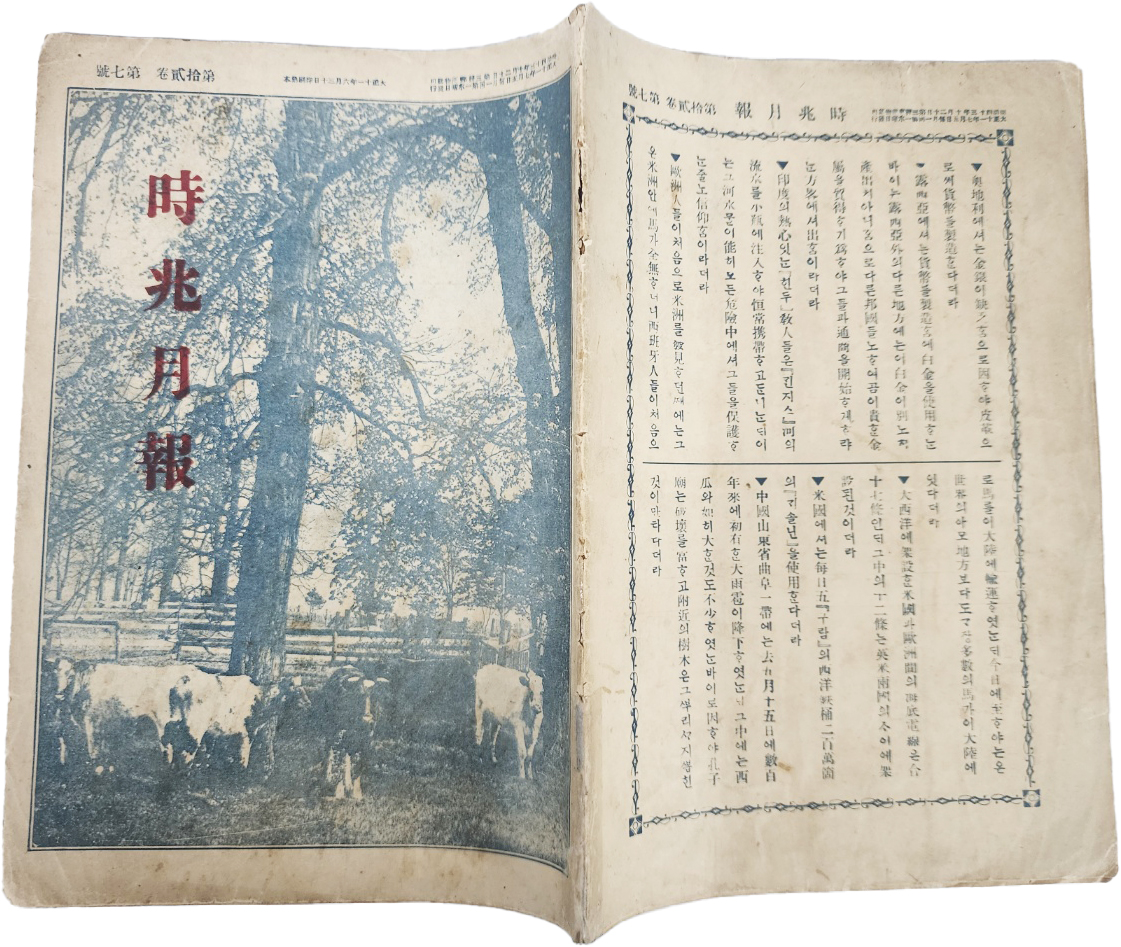 第拾貳卷 第七號
大正十一年六月三十日印刷納本
時兆月報
時兆月報 第拾貳卷 第七號
▼奧地利에셔는金銀이缺乏홈으로因ᄒᆞ야皮革으
로써貨幣를製造ᄒᆞᆫ다더라
▼露西亞에셔는貨幣를製造홈에白金을使用ᄒᆞ는
바이는露西亞外의다른地方에는이白金이別노
產出치아니홈으로다른邦國들노ᄒᆞ여곰이貴ᄒᆞᆫ金
屬을買得ᄒᆞ기爲ᄒᆞ야그들과通商을開始ᄒᆞ게ᄒᆞ랴
는方畧에셔出홈이라더라
▼印度의熱心잇는『힌두』敎人들은『긴지스』河의
流水를小瓶에注入ᄒᆞ야恒常携帶ᄒᆞ고ᄃᆞᆫ니는ᄃᆡ이
는그河水물이能히모든危險中에셔그들을保護ᄒᆞ
는줄노信仰홈이라더라
▼歐洲人들이처음으로米洲를發見ᄒᆞ던ᄯᅢ에는그
온米洲안에馬가全無ᄒᆞ더니西班牙人들이처음으
로馬를이大陸에輸運ᄒᆞ엿는ᄃᆡ今日에至ᄒᆞ야는온
世界의아모地方보다도가장多數의馬가이大陸에
잇다더라
▼大西洋에架設ᄒᆞᆫ米國과歐洲間의海底電線은合
十七條인ᄃᆡ그中의十二條는英米兩國의ᄉᆞ이에架
設된것이더라
▼米國에셔는每日五『ᄭᅡ람』의西洋鐵桶二百萬箇
의『ᄭᅵ솔닌』을使用ᄒᆞᆫ다더라
▼中國山東省曲阜一帶에는去五月十五日에數百
年來에初有ᄒᆞᆫ大雨雹이降下ᄒᆞ엿는ᄃᆡ그中에는西
瓜와如히大ᄒᆞᆫ것도不少ᄒᆞ엿는바이로因ᄒᆞ야孔子
廟는破壞를當ᄒᆞ고附近의樹木은그ᄲᅮ리ᄭᆞ지ᄲᅩᆸ힌
것이만타더라